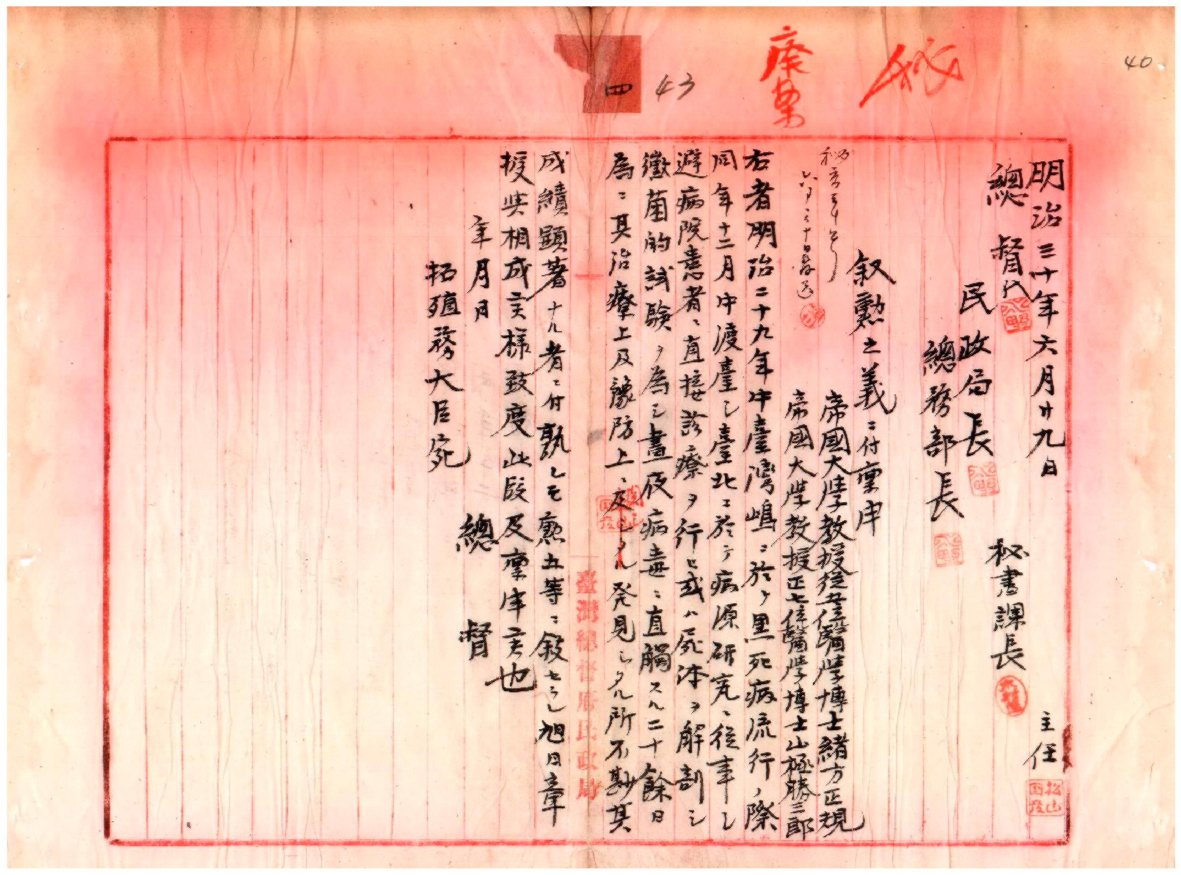 40
秘
廃案
四
43
明治三十年六月廿九日
主任
總督
秘書課長
民政局長
總務部長
叙勲之義ニ付稟申
帝國大學教授從五位醫學博士緒方正規
帝國大學教授正七位醫學博士山極勝三郎
右者明治二十九年中臺灣嶋ニ於ケル黒死病流行ノ際
同年十二月中渡臺シ臺北ニ於テ病源研究ニ從事シ
避病院患者ニ直接診療ヲ行ヒ或ハ死体ヲ解剖シ
黴菌的試験ヲ為シ晝夜病毒ニ直觸スル二十餘日
為ニ其治療上及豫防上ニ発見シタル所不尠其
成績顕著ナル者ニ付孰レモ勲五等ニ叙セラレ旭日章
授與相成候様致度此段及稟申候也
年月日
總督
拓殖務大臣宛
臺灣總督府民政局